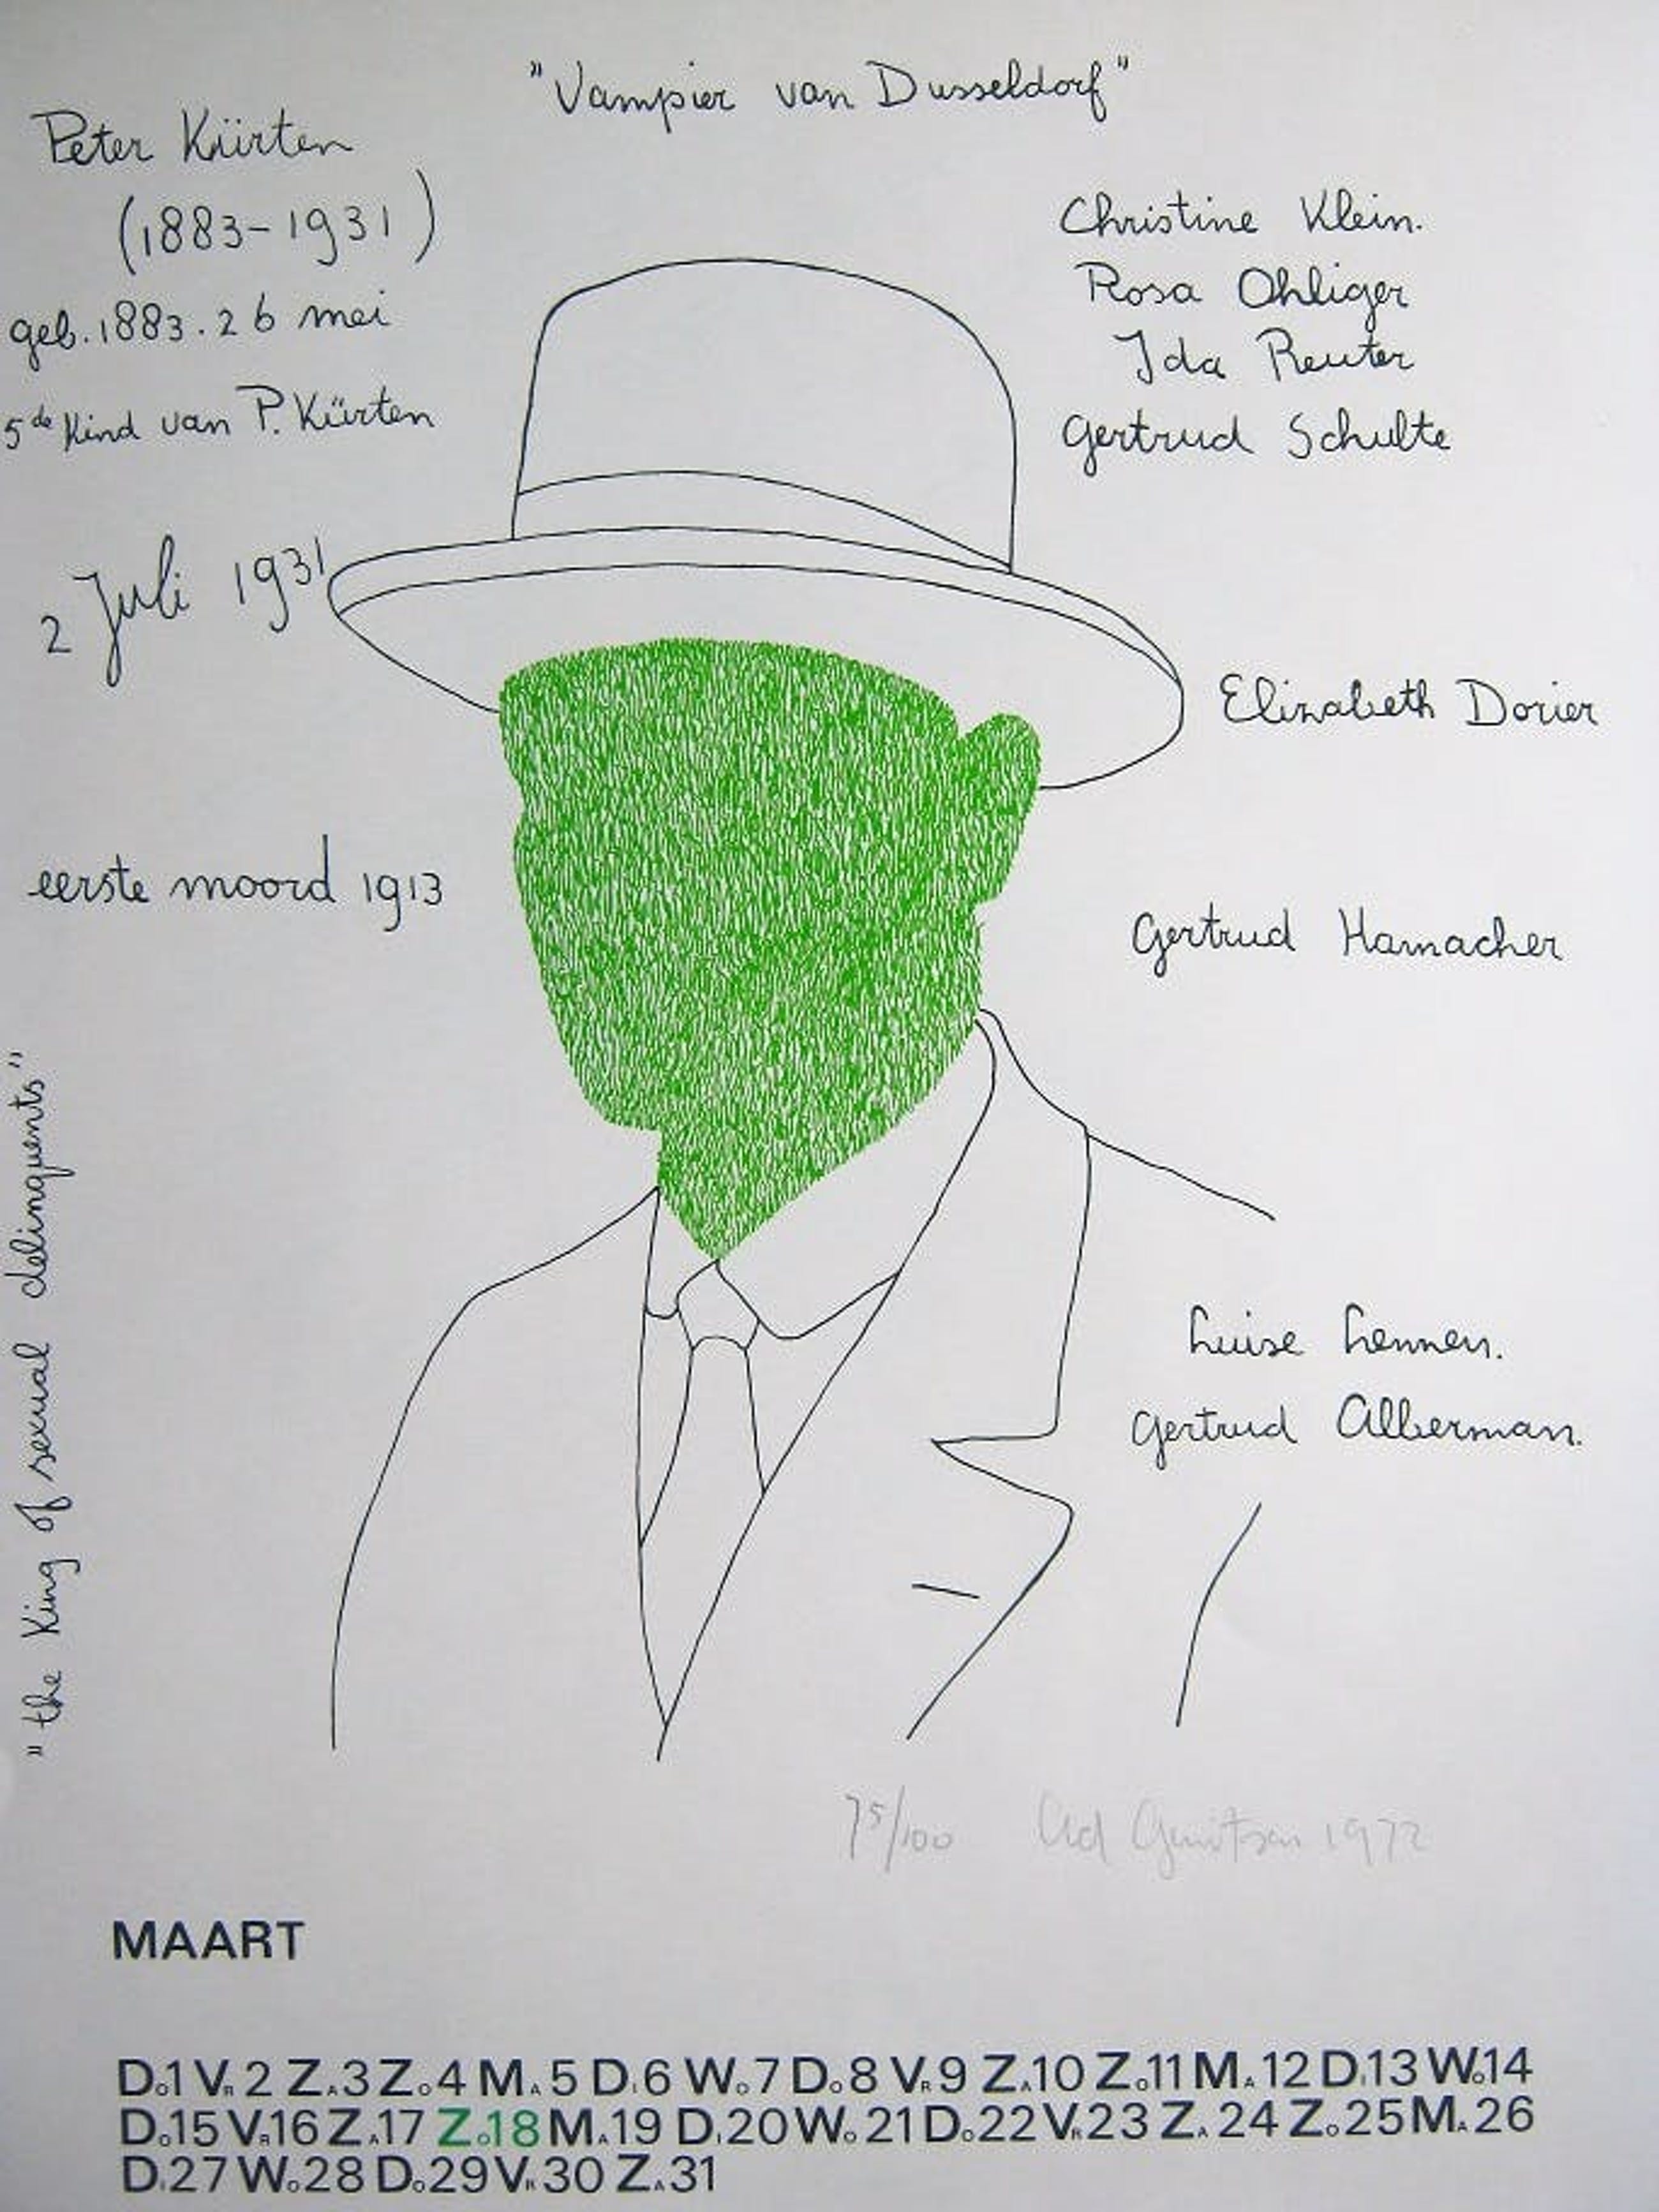 "Vampier van Dusseldorf"
Peter Kürten
(1883-1931)
geb. 1883. 26 mei
5de Kind van P. Kürten
2 Juli 1931
eerste moord 1913
"the King of sexual delinquents"
Christine Klein.
Rosa Ohliger
Ida Reuter
Gertrud Schulte
Elizabeth Dorier
Gertrud Hamacher
Luise Lennen.
Gertrud Alberman.
75/100 Ad 1972
MAART
Do.1 VR.2 ZA.3 Zo.4 MA.5 DI.6 Wo.7 Do.8 VR.9 ZA.10 Zo.11 MA.12 DI.13 Wo.14
Do.15 VR.16 ZA.17 Zo.18 MA.19 DI.20 Wo.21 Do.22 VR.23 ZA.24 Zo.25 MA.26
DI.27 Wo.28 Do.29 VR.30 ZA.31